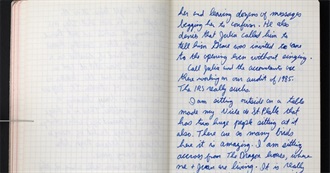 her and leaving dozens of messages
begging her to confirm. He also
denies that Julia called him to
tell him Grace was invited to come
to the opening even without singing.
Call Julia and the accountants are
there working on our audit of 1985.
The IRS really sucks.
I am sitting outside on a table
made by Niki de St. Phalle that
has two huge people sitting at it
also. There are so many birds
here it is amazing. I am sitting
across from The Dragon house, where
me + Juan are living. It is really